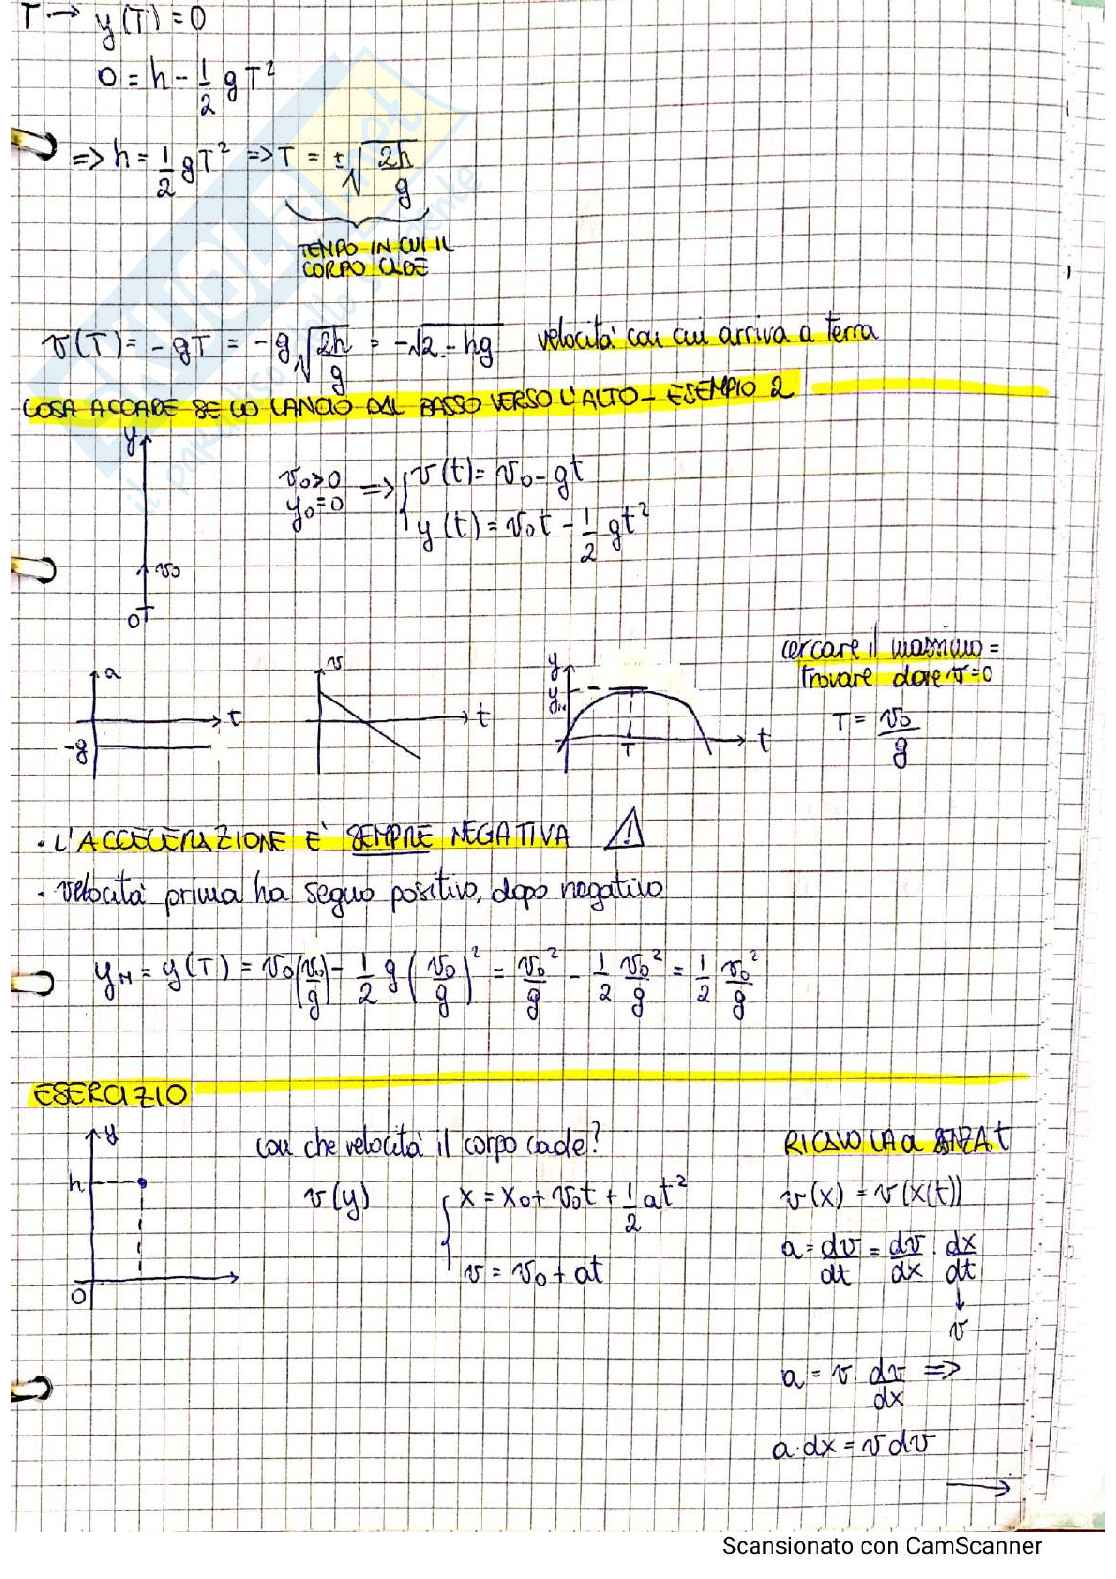 T → y(T) = 0
0 = h - 1/2 gT²
=> h = 1/2 gT² => T = ±√(2h/g)
TEMPO IN CUI IL
CORPO CADE
v(T) = -gT = -g√(2h/g) = -√2·hg velocità con cui arriva a terra
COSA ACCADE SE LO LANCIO DAL BASSO VERSO L'ALTO - ESEMPIO 2
y
v₀>0
y₀=0 => { v(t) = v₀ - gt
y(t) = v₀t - 1/2 gt²
v₀
0
cercare il massimo =
trovare dove v=0
T = v₀/g
a
t
-g
v
t
y
yM
T
t
· L'ACCELERAZIONE E' SEMPRE NEGATIVA ⚠
· velocità prima ha segno positivo, dopo negativo
yM = y(T) = v₀(v₀/g) - 1/2 g (v₀/g)² = v₀²/g - 1/2 v₀²/g = 1/2 v₀²/g
ESERCIZIO
y
h
0
con che velocità il corpo cade?
v(y) { x = x₀ + v₀t + 1/2 at²
v = v₀ + at
RICAVO LA a SENZA t
v(x) = v(x(t))
a = dv/dt = dv/dx · dx/dt
↓
v
a = v dv/dx =>
a·dx = v dv
→
Scansionato con CamScanner